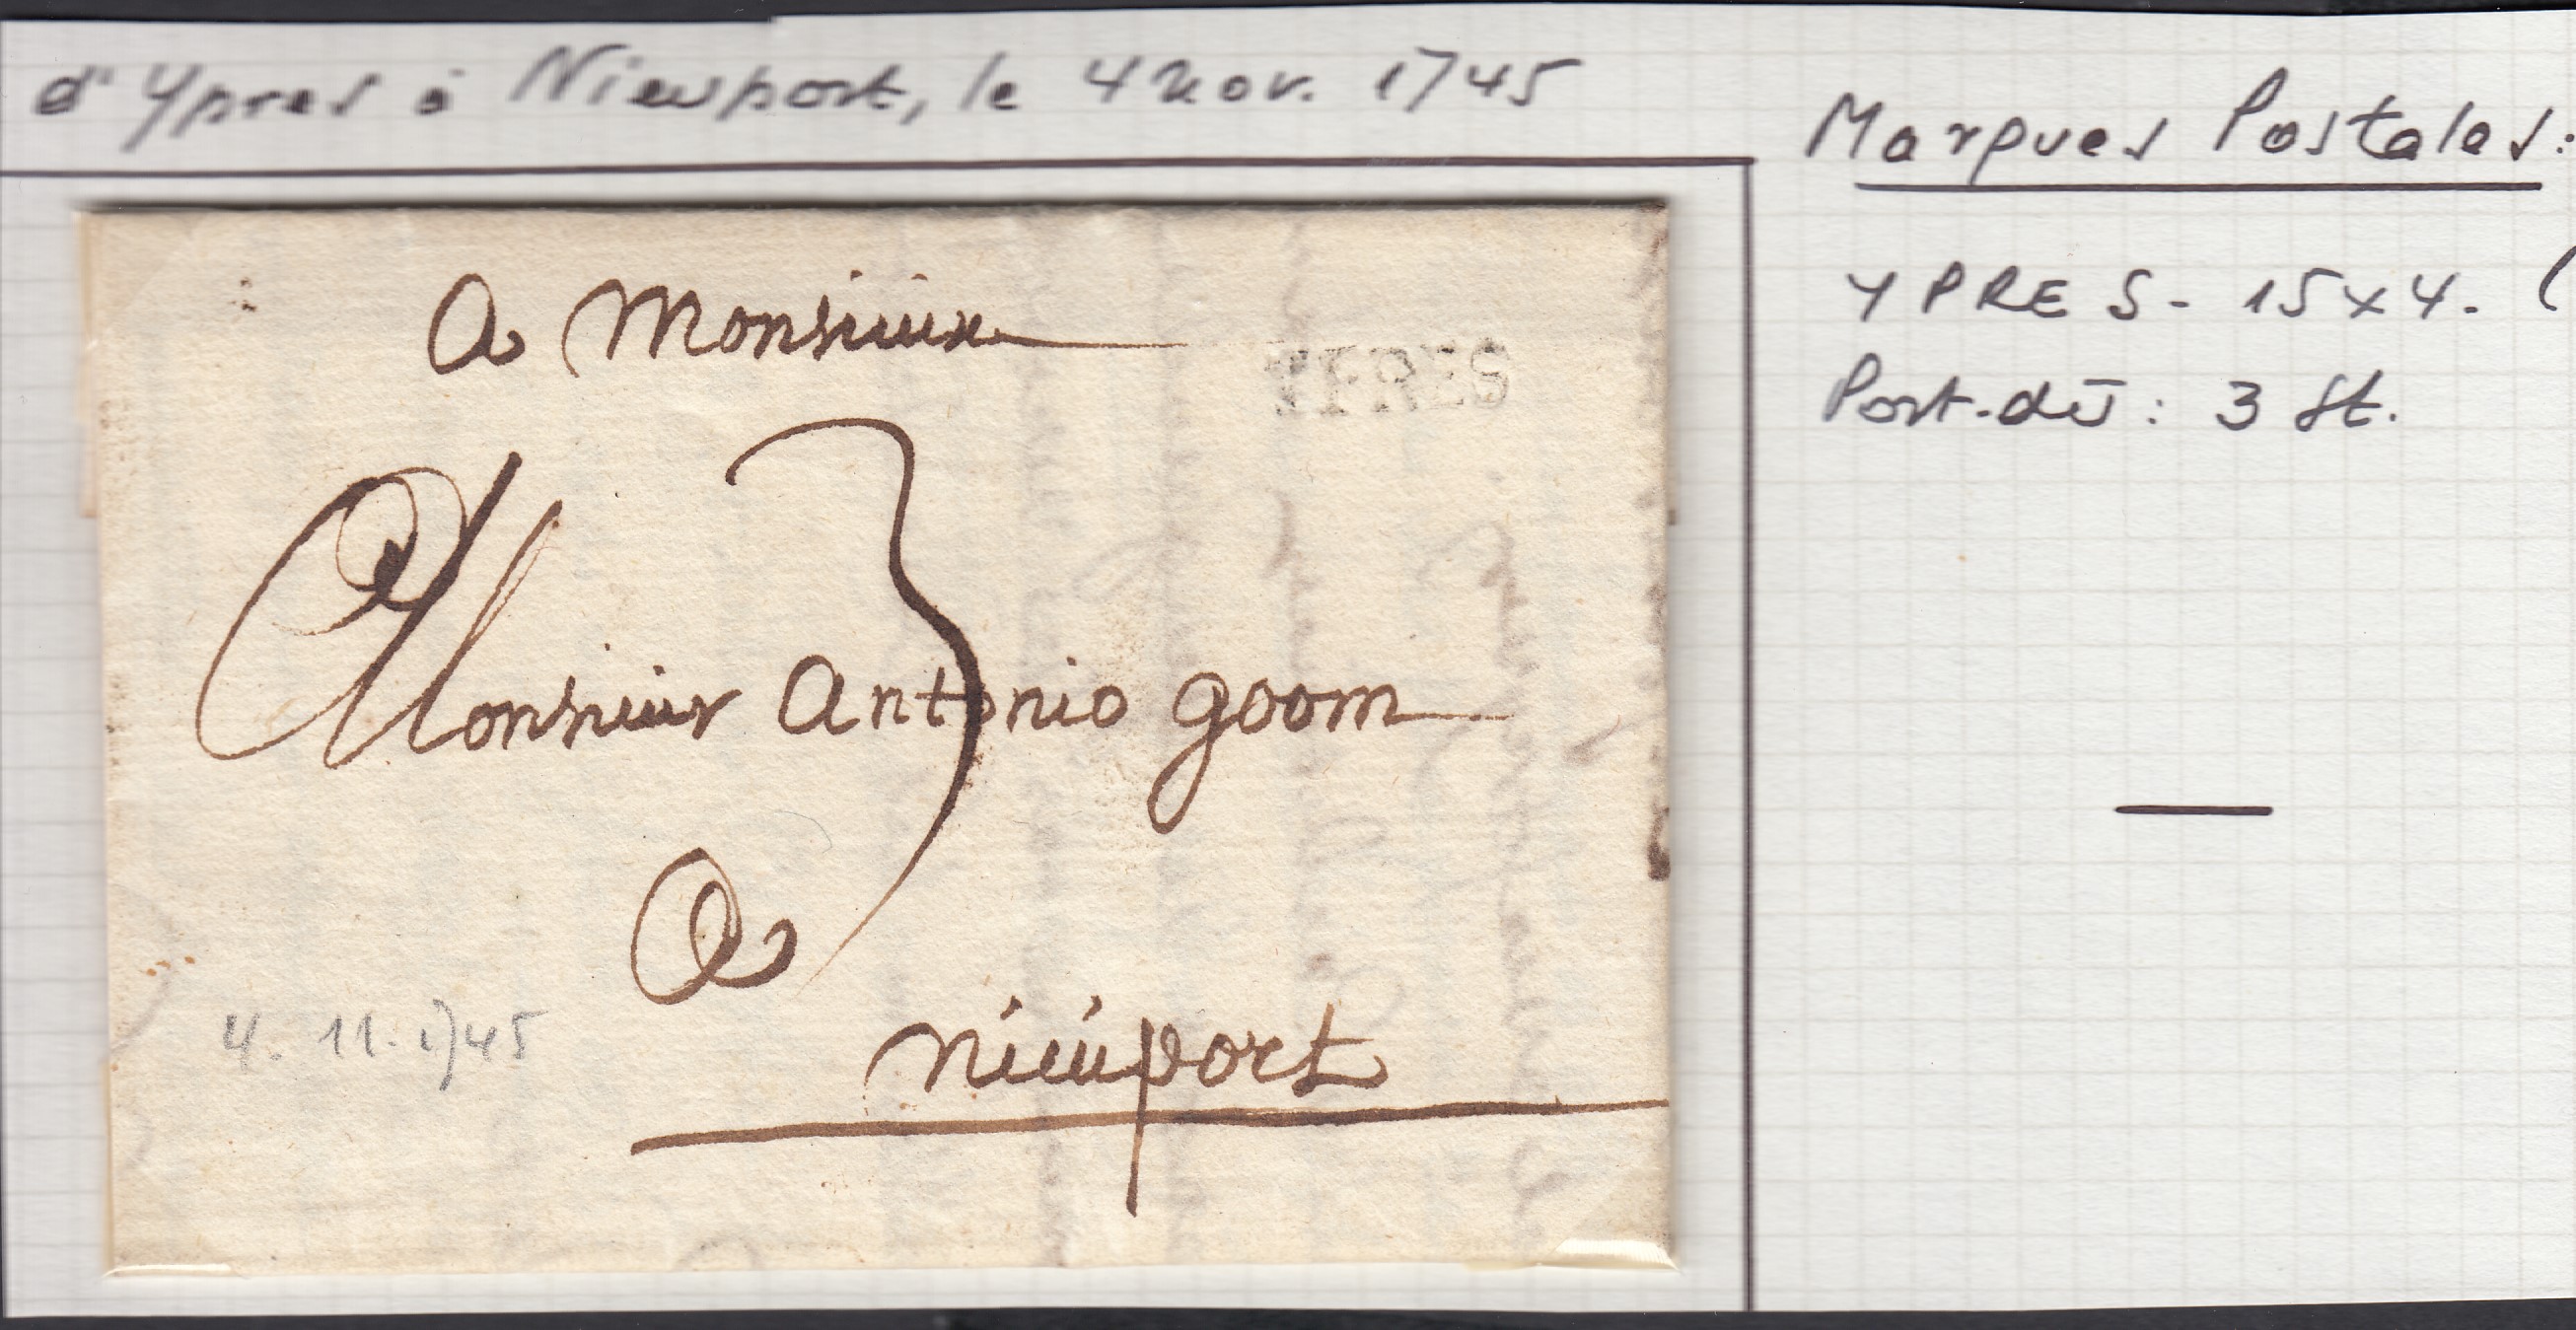 d'Ypres à Nieuport, le 4 Nov. 1745
Marques Postales:
YPRES - 15x4. (
Port-dû: 3 St.
a Monsieur
YPRES
3
Monsieur Antonio goom
a
nieuport
4. 11. 1745